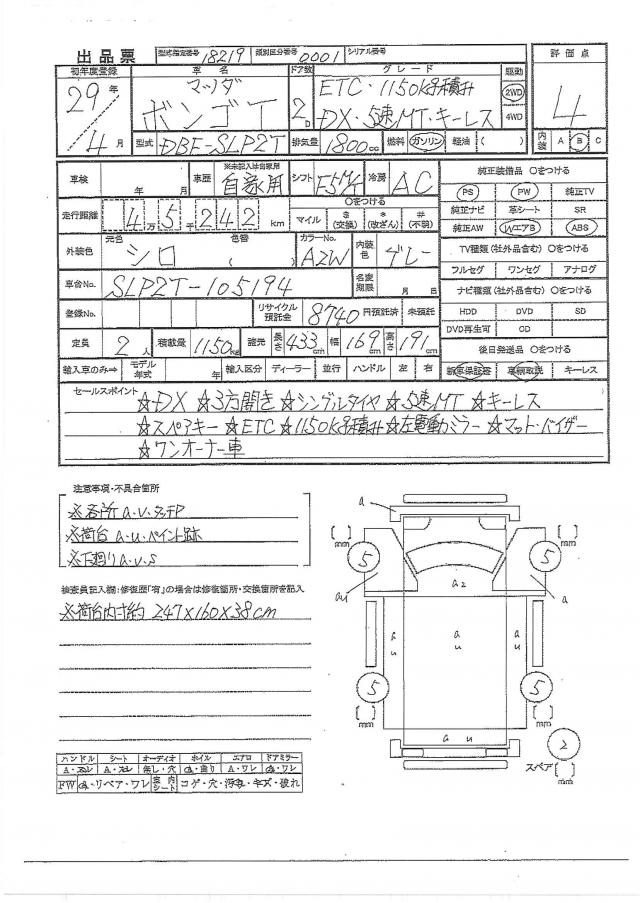 出品票 型式指定番号 18219 類別区分番号 0001 シリアル番号
初年度登録 車名 ドア数 グレード 駆動 評価点
29年 4月 マツダ ボンゴT 2D ETC・1150kg積み 2WD
DX・5速MT・キーレス 4WD 4
型式 DBF-SLP2T 排気量 1800cc 燃料 ガソリン 軽油 ( ) 内装 A B C
車検 年 月 車歴 ※未記入は自家用 自家用 シフト F5MT 冷房 AC
純正装備品 〇をつける
PS PW 純正TV
純正ナビ 革シート SR
純正AW WエアB ABS
走行距離 4万5千242km 〇をつける マイル $(交換) *(改ざん) #(不明)
外装色 元色 シロ 色替 ( ) カラーNo. A2W 内装色 グレー
TV種類(社外品含む)〇をつける
フルセグ ワンセグ アナログ
車台No. SLP2T-105194 名変期限 月 日
ナビ種類(社外品含む)〇をつける
HDD DVD SD
DVD再生可 CD
登録No. リサイクル預託金 8740円預託済 未預託
定員 2人 積載量 1150kg 諸元 長さ 433cm 幅 169cm 高さ 191cm
後日発送品 〇をつける
輸入車のみ⇒ モデル年式 年 輸入区分 ディーラー 並行 ハンドル 左 右
新車保証書 車輌取説 キーレス
セールスポイント
☆DX ☆3方開き ☆シングルタイヤ ☆5速MT ☆キーレス
☆スペアキー ☆ETC ☆1150kg積み ☆左電動ミラー ☆マット・バイザー
☆ワンオーナー車
注意事項・不具合箇所
※各所a.v.タッチP
※荷台a.u.ペイント跡
※下廻りa.u.s
検査員記入欄:修復歴「有」の場合は修復箇所・交換箇所を記入
※荷台内寸約 247×160×38cm
a
[ ] mm 5 5 [ ] mm
au a2 a
a u a u a u
5 5
[ ] mm [ ] mm
a u
2
スペア [ ] mm
ハンドル シート オーディオ ホイル エアロ ドアミラー
A・スレ A・スレ 無し・穴 曲り A・ワレ ワレ
FW リペア・ワレ 室内シート コゲ・穴・汚れ・キズ・破れ